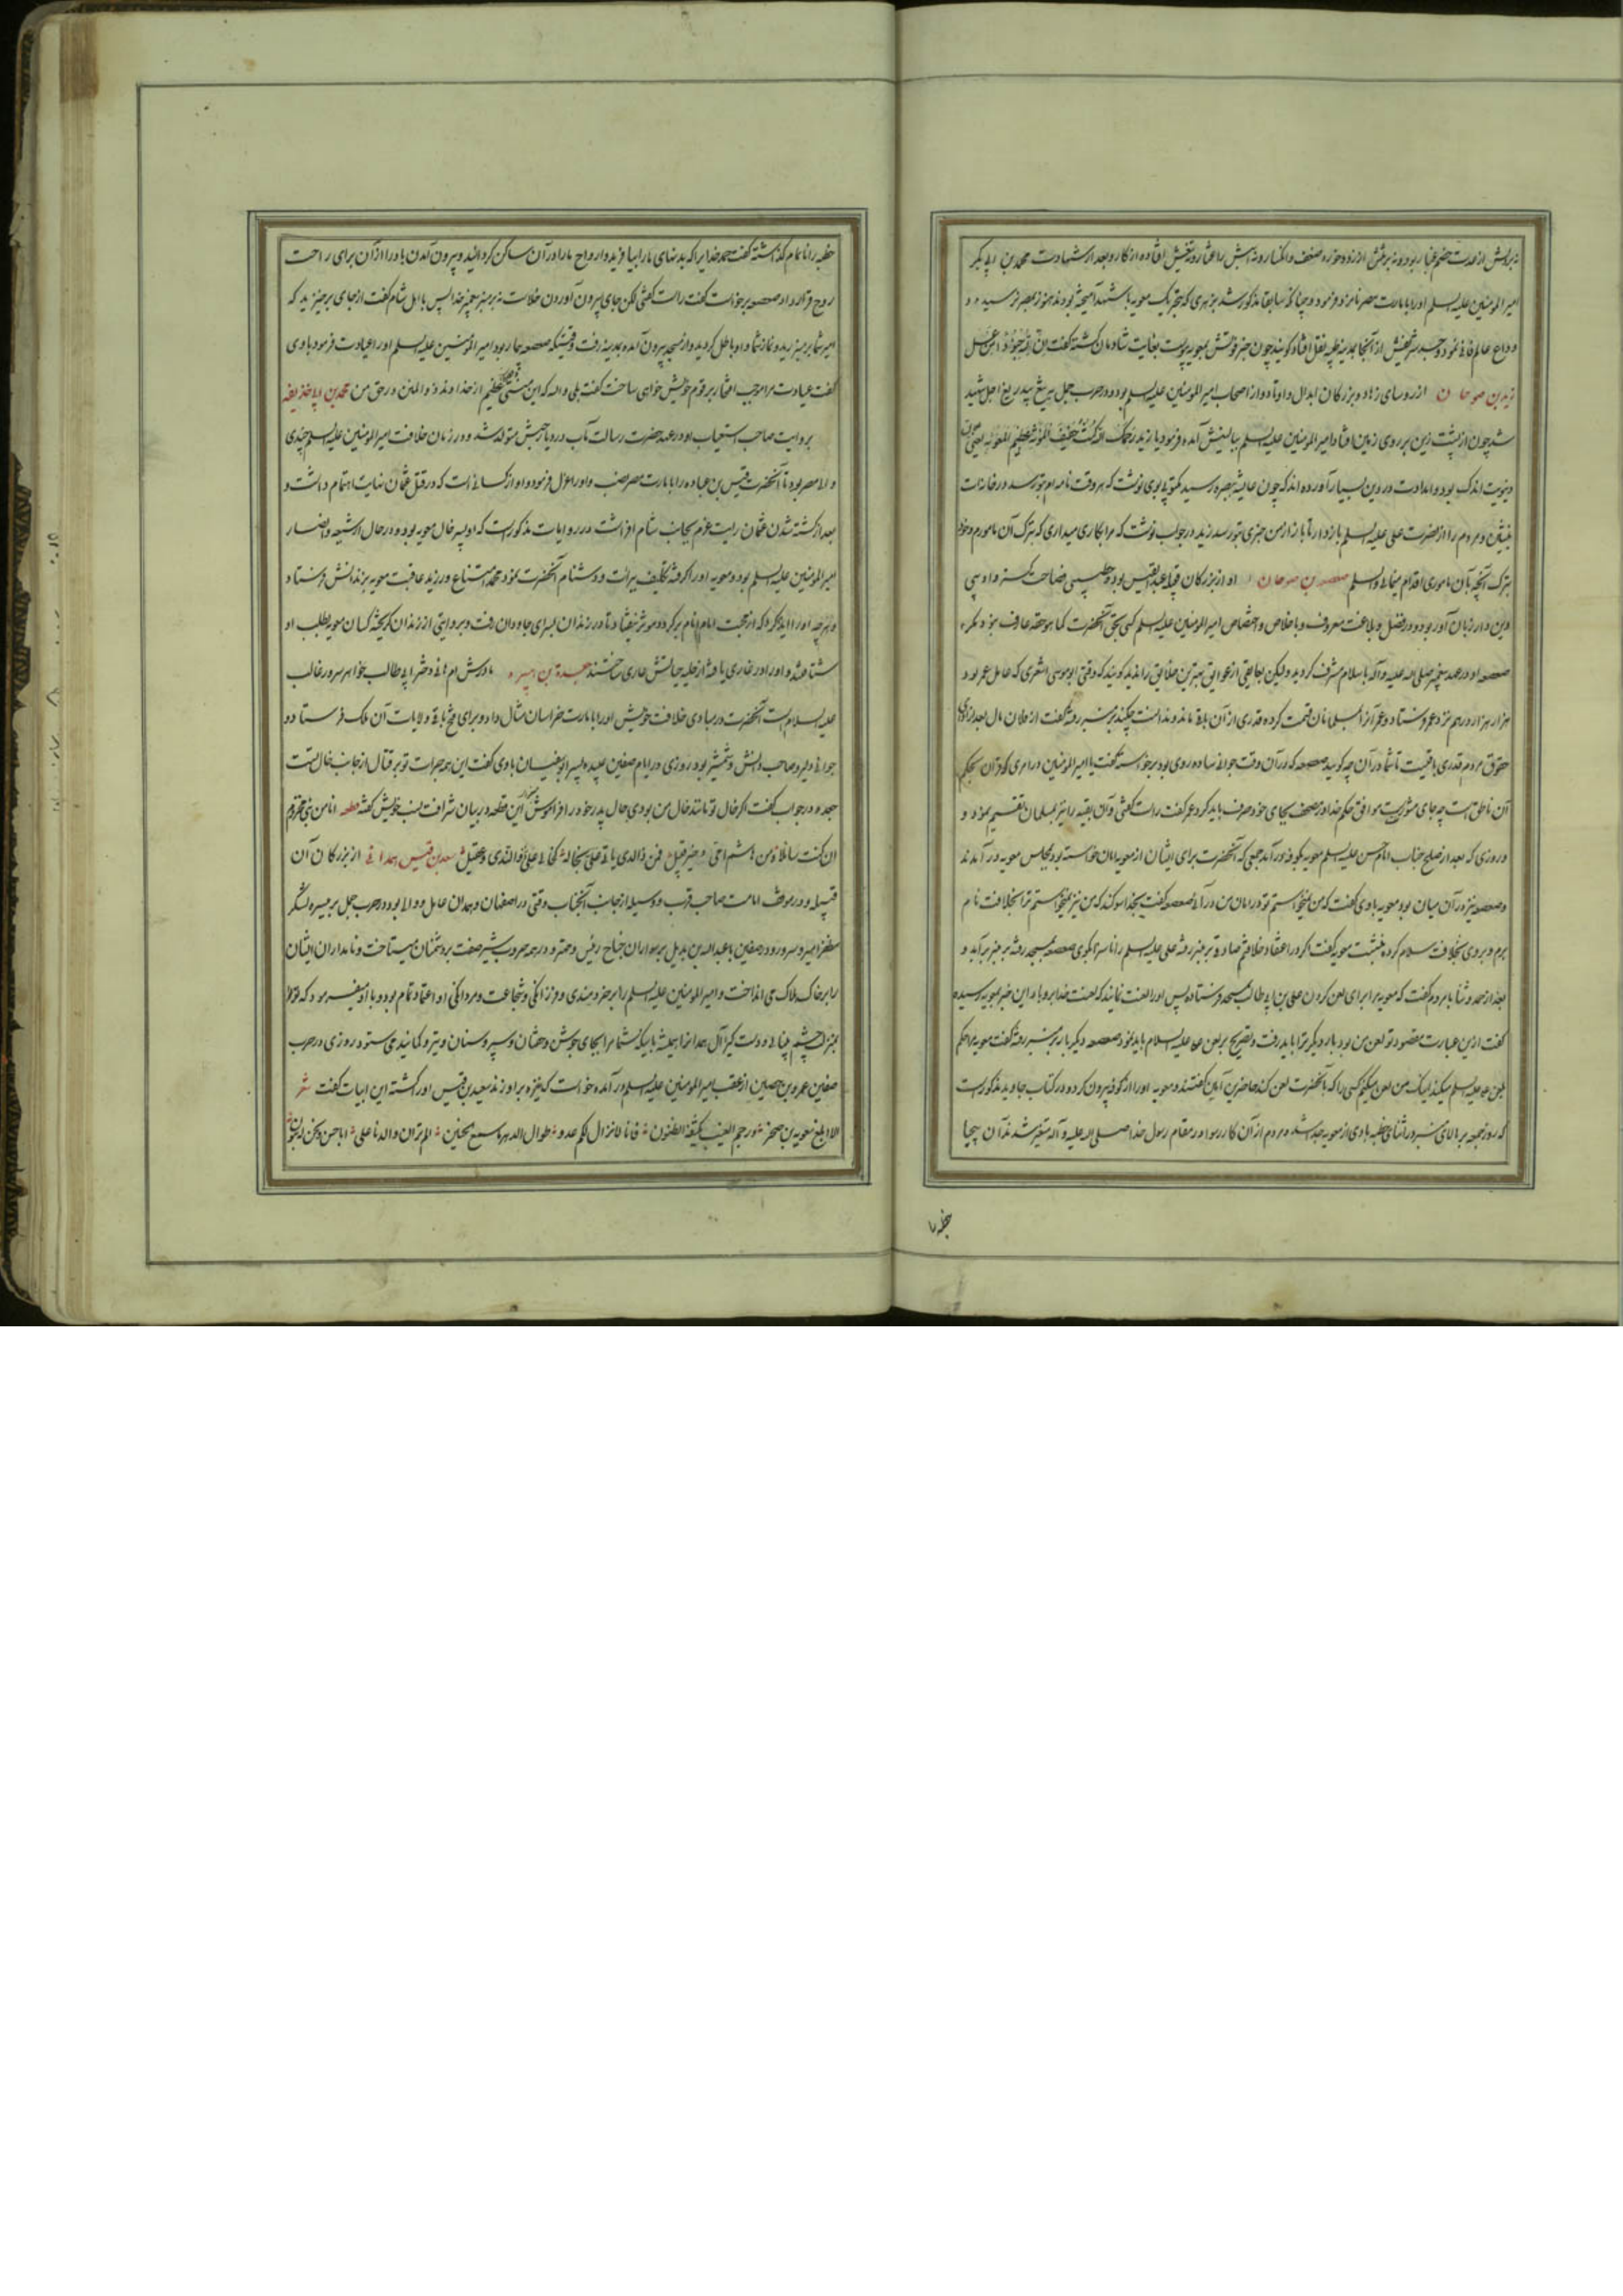 امیرالمومنین علیه السلام اورا بامارت مصر نامزد فرمود و چنانکه سابقا مذکور شد بزهری که بتحریک معویه با شهد آمیخته بودند هنوز بمصر نرسیده
وداع عالم فانی نمود و جسد شریفش از آنجا بمدینه طیبه نقل افتاد گویند چون خبر فوتش بمعویه پیوست بغایت شادمان گشته گفت ان لله جنودا من عسل
زید بن صوحان از روسای زهاد و بزرگان ابدال و اوتاد و از اصحاب امیرالمومنین علیه السلم بود و در حرب جمل به تیغ بیدریغ اجل شهید
شد چون از پشت زین بر روی زمین افتاد امیرالمومنین علیه السلم ببالینش آمده فرمود یا زید رحمک الله کنت خفیف المؤنة عظیم المعونة یعنی
دنیویت اندک بود و امدادت در دین بسیار آورده اند که چون عایشه ببصره رسید مکتوبی بوی نوشت که هر وقت نامه ام بتو رسد در خانه ات
بنشین و مردم را از نصرت علی علیه السلم باز دار تا باز از من خبری بتو رسد زید در جواب نوشت که مرا بکاری میداری که بترک آن مامورم و خود
بترک آنچه بآن ماموری اقدام مینمائی والسلم صعصعة بن صوحان او از بزرگان قبیله عبدالقیس بود و خطیبی فصاحت گستر و ادیبی
دین دار زبان آور بود و در فضل و بلاغت معروف و باخلاص و اختصاص امیرالمومنین علیه السلم کسی بحق آنحضرت کما هو حقه عارف نبود مگر
صعصعه او در عهد پیغمبر صلی الله علیه و آله باسلام مشرف گردید ولیکن گویند که وقتی ابو موسی اشعری که عامل عمر بود
هزار هزار درهم نزد عمر فرستاد و عمر آنرا بمسلمانان قسمت کرده قدری از آن باقی ماند
حقوق مردم قدری باقیست تا شما در آن چه گویید صعصعه که در آن وقت جوانی ساده روی بود برخواسته گفت یا امیرالمومنین در امری که قرآن بحکم
آن ناطق است چه جای مشورتست موافق حکم خدا و مصحف بجای خود صرف باید کرد عمر گفت راست گفتی و آن بقیه را نیز بمسلمانان تقسیم نمود و
و روزی که بعد از صلح جناب امام حسن علیه السلم معویه بکوفه در آمد جمعی که آنحضرت برای ایشان از معویه امان خواسته بود بمجلس معویه در آمدند
و صعصعه نیز در آن میان بود معویه باوی گفت که من نمیخواستم تو در امان من در آئی صعصعه گفت بخدا سوگند که من نیز نمیخواستم ترا بخلافت نام
برم و بروی بخلافت سلام کرده بنشست معویه گفت اگر در اعتقاد خلافتم صادقی بر منبر رفته علی علیه السلم را ناسزا بگوی صعصعه بمسجد رفته بر منبر برآمد و
بعد از حمد و ثنا بامردم گفت که معویه مرا برای لعن کردن علی بن ابی طالب بمسجد فرستاده پس اورا لعنت نمایند که لعنت خدا برو باد این خبر بمعویه رسیده
گفت ازین عبارت مقصود تو لعن من بود بار دیگر ترا باید رفت و تصریح بر لعن علی علیه السلام باید نمود صعصعه دیگر بار بر منبر رفته گفت معویه مرا حکم
بلعن علی علیه السلم میکند اینک من لعن میکنم کسی را که بآنحضرت لعن کند حاضرین آمین گفتند و معویه اورا از کوفه بیرون کرد و در کتاب مذکورست
که روز جمعه بر بالای منبر در اثنای خطبه بادی از معویه جدا شد و مردم از آن کار رسوا در مقام رسول خدا صلی الله علیه و آله متغیر شدند آن بیحیا
خطبه را
خطبه را ناتمام گذاشته گفت حمد خدایرا که بدنهای مارا بیافرید و ارواح مارا در آن ساکن گردانید و بیرون آمدن باد را از آن برای راحت
روح قرار داد صعصعه برخواست گفت راست گفتی لکن جای بیرون آوردن خلاست نه بر منبر پیغمبر خدا پس با اهل شام گفت از جای برخیزید که
امیر شما بر منبر رید و نماز شما و او باطل گردید و از مسجد بیرون آمده بمدینه رفت وقتیکه صعصعه بیمار بود امیرالمومنین علیه السلم اورا عیادت فرمود باوی
گفت عیادت مرا موجب افتخار بر قوم خویش خواهی ساخت گفت بلی والله که این منتی عظیم از خداوند ذو المنن در حق من محمد بن ابی حذیفه
بروایت صاحب استیعاب او در عهد حضرت رسالت مآب در دیار حبش متولد شد و در زمان خلافت امیرالمومنین علیه السلم چندی
والی مصر بود تا آنحضرت قیس بن عباده را بامارت مصر نصب و اورا عزل فرمود و او از کسانی است که در قتل عثمان نهایت اهتمام داشت و
بعد از کشته شدن عثمان رایت عزم بجانب شام افراشت در روایات مذکورست که او پسر خال معویه بود و در حال از شیعه و انصار
امیرالمومنین علیه السلم بود و معویه اورا گرفته تکلیف برائت و دشنام آنحضرت نمود محمد امتناع ورزید عاقبت معویه بزندانش فرستاد
و هر چه اورا ایذا کرد که از محبت امام انام برگردد موثر نیفتاد تا در زندان بسرای جاودان رفت و بروایتی از زندان گریخته کسان معویه بطلب او
شتافتند و اورا در غاری یافته از حلیه حیاتش عاری ساختند جعدة بن هبیره مادرش ام هانی دختر ابی طالب خواهر سرور غالب
علیه السلام است آنحضرت در مبادی خلافت خویش اورا بامارت خراسان مثال داد و برای فتح باقی ولایات آن ملک فرستاد و
جوانی دلیر و صاحب دانش و شمشیر بود روزی در ایام صفین عتبه پسر ابوسفیان باوی گفت این همه جرات تو بر قتال از جانب خال تست
جعده در جواب گفت اگر خال تو مانند خال من بودی حال پدر خود را فراموش این قطعه در بیان شرافت نسب خویش گفته قطعه انا من بنی مخزوم
ان کنت سائلا ومن هاشم امی و خیر قبیل فمن ذا الذی یابی علی بخاله کخالی علی ذی الندی و عقیل سعید بن قیس همدانی از بزرگان آن
قبیله و در موقف امامت صاحب قرب و وسیله از جانب آنجناب وقتی در اصفهان و همدان عامل و والی بود و در حرب جمل بر میسره لشکر
مظفر امیر و سرور و در صفین با عبدالله بن بدیل بر سواران جناح رئیس و مهتر و در همه حروب شیر صفت بر دشمنان میتاخت و نامداران ایشان
را بر خاک هلاک می انداخت و امیرالمومنین علیه السلم را بر خردمندی و فرزانگی و شجاعت و مردانگی او اعتماد تمام بود و با او میفرمود که تو مرا
بمنزله چشم بینائی و دست گیرا آل همدان همیشه شما مرا بجای جوشن و خفتان و سپر و سنان و تیر و کمانید می ستود روزی در حرب
صفین عمرو بن حصین از عقب امیرالمومنین علیه السلم در آمده خواست که نیزه براو زند سعید بن قیس اورا کشته این ابیات گفت شعر
الا ابلغ معویة بن صخر ورجم الغیب یکشفه الظنون فانا لا نزال لکم عدو طوال الدهر ما سمع الحنین الم تر ان والدنا علی ابا حسن ونحن له بنون